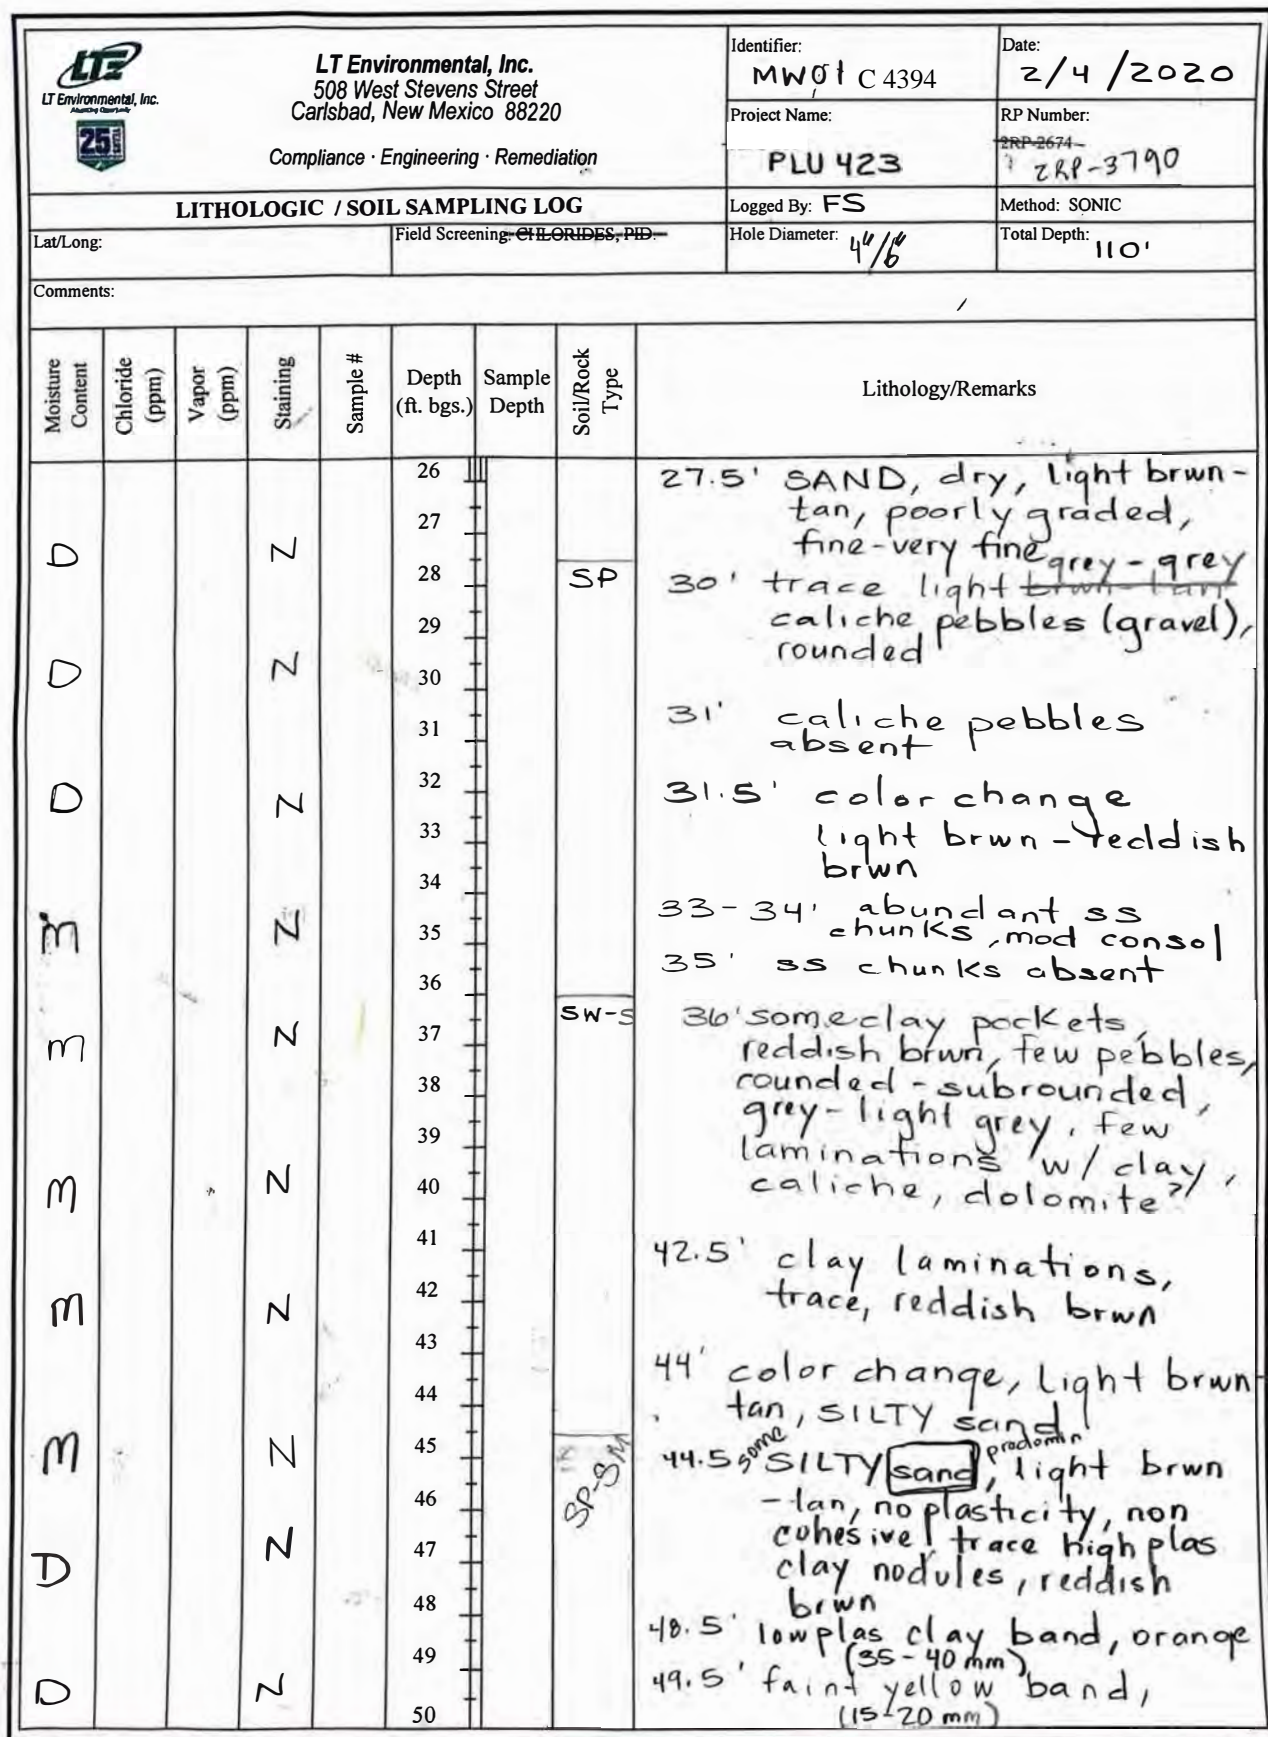 LTE
LT Environmental, Inc.
Advancing Opportunity
25
LT Environmental, Inc.
508 West Stevens Street
Carlsbad, New Mexico 88220
Compliance · Engineering · Remediation
Identifier:
MW01 C 4394
Date:
2/4/2020
Project Name:
PLU 423
RP Number:
2RP-2674
2RP-3790
LITHOLOGIC / SOIL SAMPLING LOG
Logged By: FS
Method: SONIC
Lat/Long:
Field Screening: CHLORIDES, PID.
Hole Diameter: 4"/6"
Total Depth: 110'
Comments:
Moisture Content
Chloride (ppm)
Vapor (ppm)
Staining
Sample #
Depth (ft. bgs.)
Sample Depth
Soil/Rock Type
Lithology/Remarks
26
27
D N
28
SP
29
D N
30
31
32
D N
33
34
M N
35
36
SW-S
37
M N
38
39
M N
40
41
42
M N
43
44
45
M N
SP-SM
46
47
D N
48
49
D N
50
27.5' SAND, dry, light brwn-
tan, poorly graded,
fine-very fine
grey-grey
30' trace light brwn-tan
caliche pebbles (gravel),
rounded
31' caliche pebbles
absent
31.5' color change
light brwn - reddish
brwn
33-34' abundant ss
chunks, mod consol
35' ss chunks absent
36' some clay pockets,
reddish brwn, few pebbles,
rounded - subrounded,
grey-light grey, few
laminations w/ clay,
caliche, dolomite?
42.5' clay laminations,
trace, reddish brwn
44' color change, light brwn-
tan, SILTY sand
some predomin
44.5' SILTY sand, light brwn
-tan, no plasticity, non
cohesive, trace high plas
clay nodules, reddish
brwn
48.5' low plas clay band, orange
(35-40 mm)
49.5' faint yellow band,
(15-20 mm)